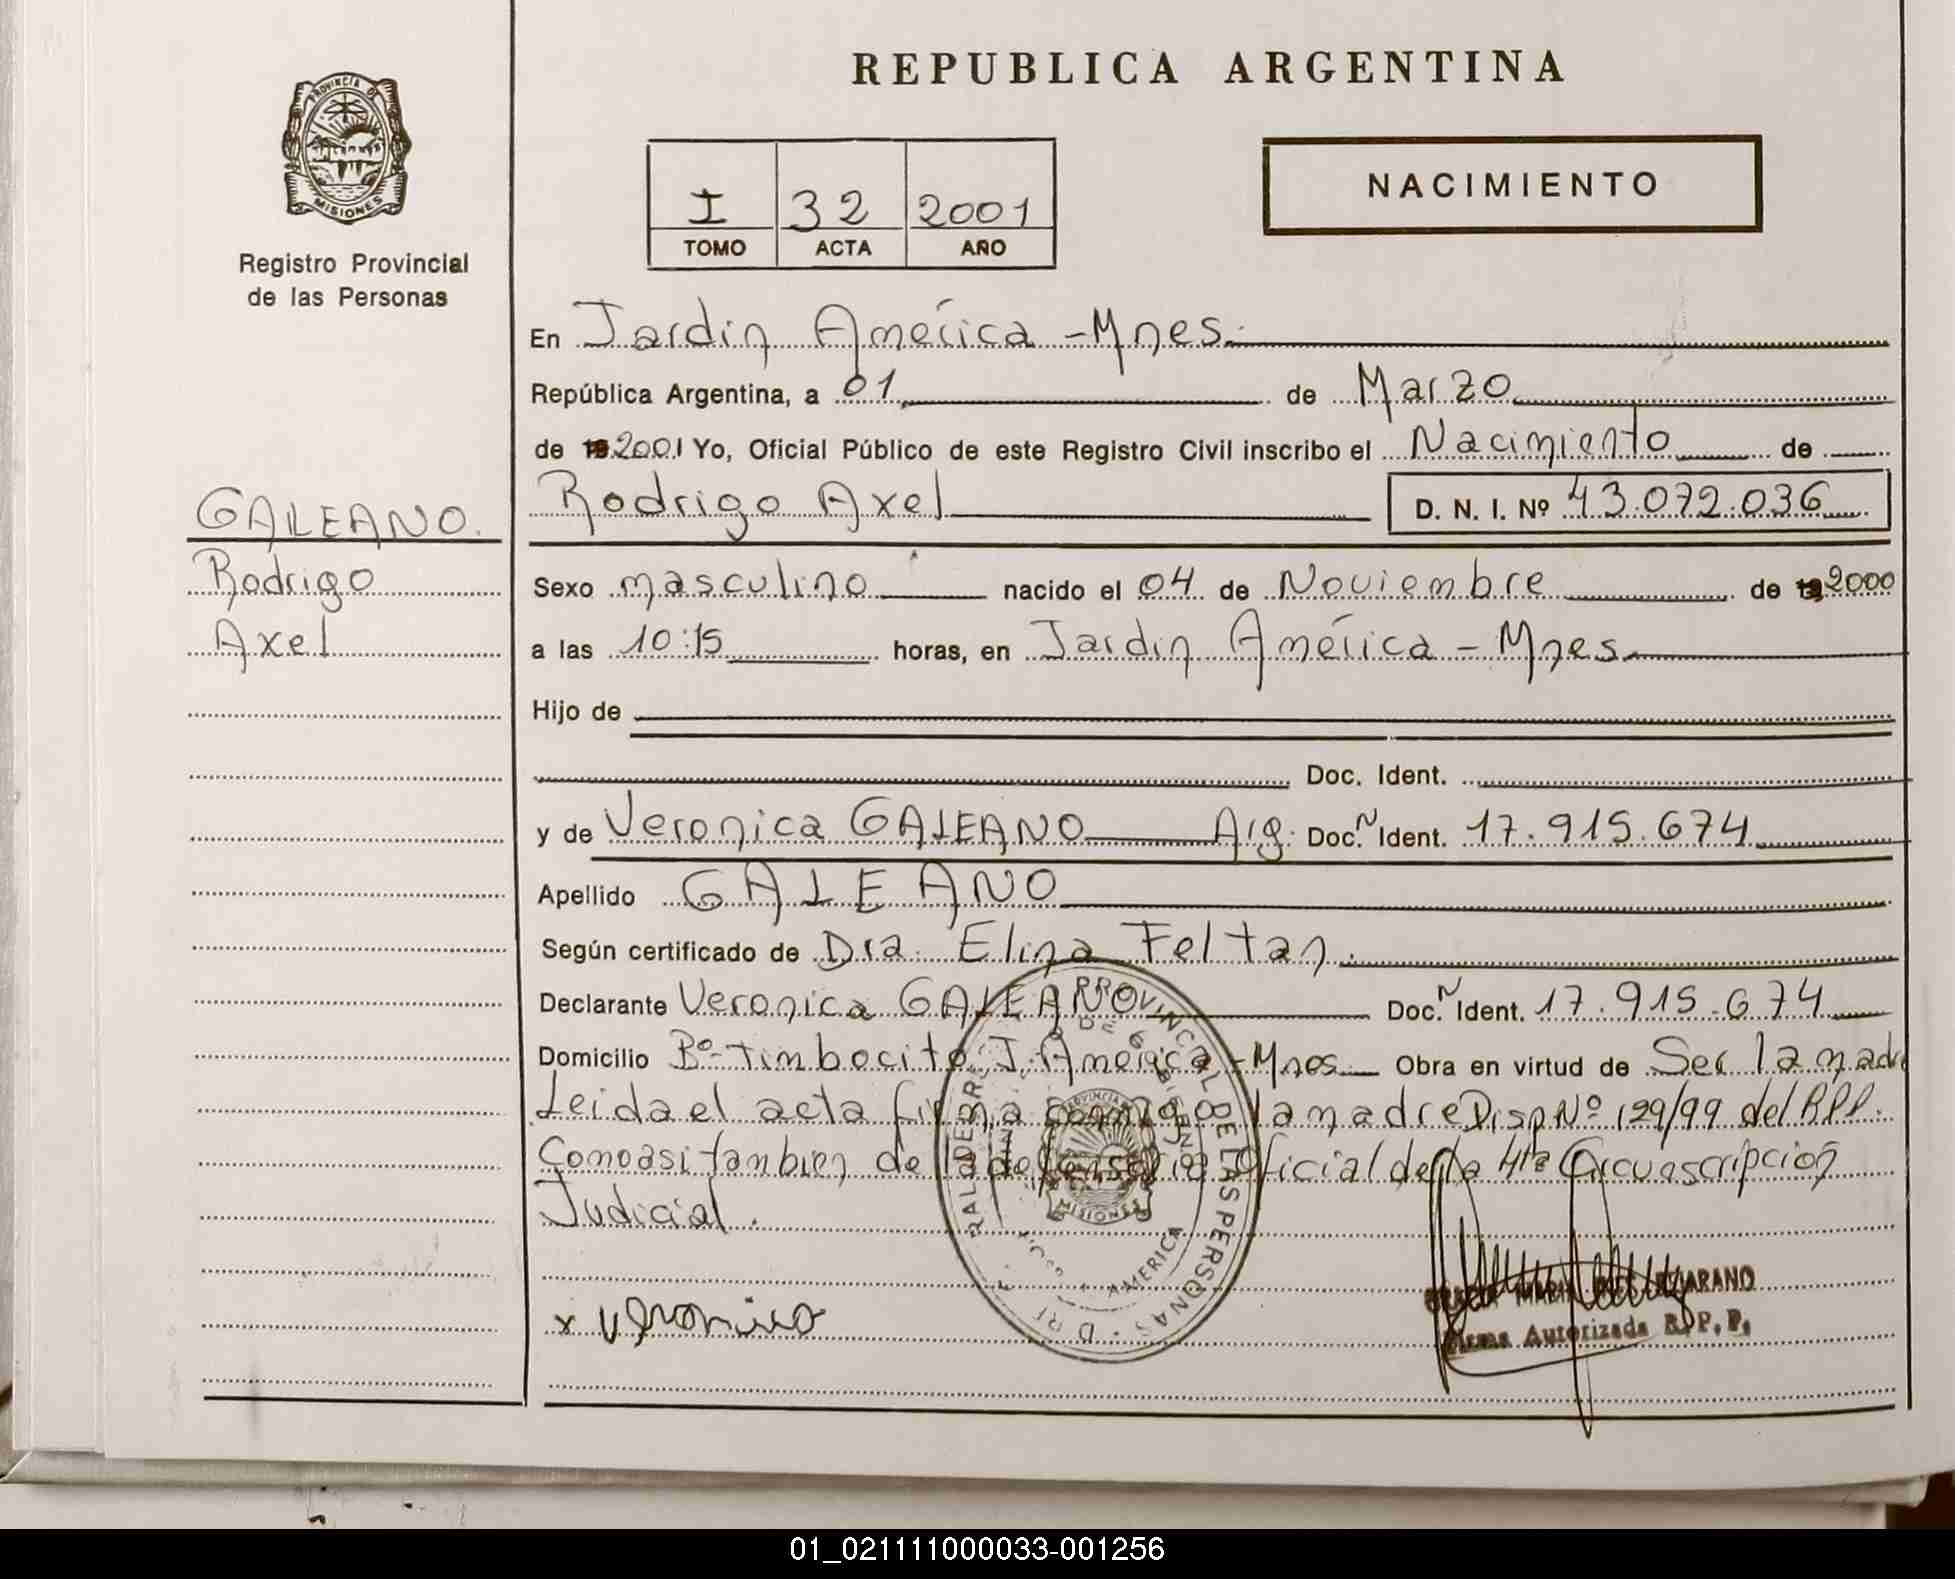 REPUBLICA ARGENTINA
PROVINCIA DE MISIONES
Registro Provincial
de las Personas
I 32 2001
TOMO ACTA AÑO
NACIMIENTO
GALEANO.
Rodrigo
Axel
En Jardin América - Mnes.
República Argentina, a 01 de Marzo
de 19 2001 Yo, Oficial Público de este Registro Civil inscribo el Nacimiento de
Rodrigo Axel D. N. I. Nº 43.072.036
Sexo masculino nacido el 04 de Noviembre de 19 2000
a las 10:15 horas, en Jardin América - Mnes.
Hijo de
Doc. Ident.
y de Veronica GALEANO Arg. Doc. N Ident. 17.915.674
Apellido GALEANO
Según certificado de Dra. Elina Feltan.
Declarante Veronica GALEANO Doc. N Ident. 17.915.674
Domicilio Bº Timbocito J. América - Mnes Obra en virtud de Ser la madre
Leida el acta firma conmigo la madre Disp Nº 129/99 del R.P.P.
Como asi tambien de la defensoria Oficial de la 4ta Circunscripción
Judicial.
PROVINCIAL DE LAS PERSONAS
AMERICA
MISIONES
x Veronica
Firma Autorizada R. P. P.
01_021111000033-001256